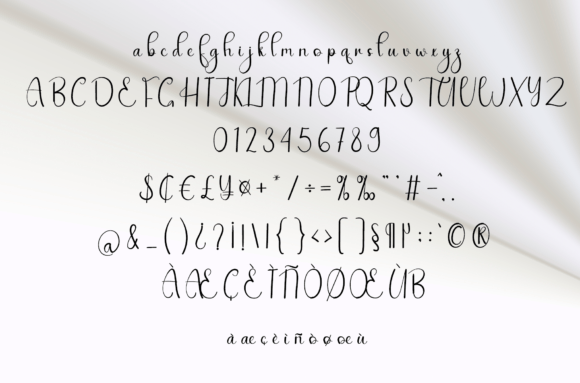 abcdefghijklmnopqrstuvwxyz
ABCDEFGHIJKLMNOPQRSTUVWXYZ
0123456789
$₵€£¥¤+*/÷=%‰"'`#-^..
@&_()¿?¡!\|{}<>[]§¶:©®
ÀÆÇÈÌÑÒØŒÙB
àæçèìñòøœù